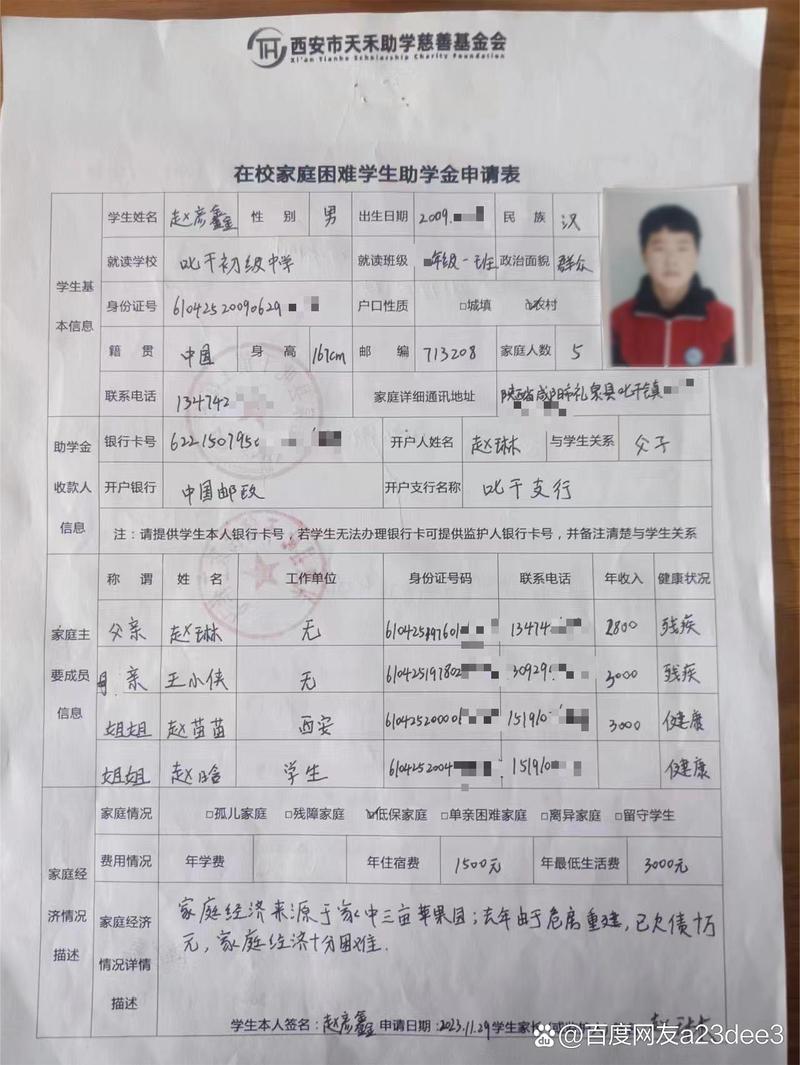 西安市天禾助学慈善基金会
Xi'an Tianhe Scholarship Charity Foundation
在校家庭困难学生助学金申请表
学生基本信息
学生姓名 赵彦鑫 性别 男 出生日期 2009. 民族 汉
就读学校 叱干初级中学 就读班级 年级一班 政治面貌 群众
身份证号 61042520090629 户口性质 □城填 ☑农村
籍贯 中国 身高 167cm 邮编 713208 家庭人数 5
联系电话 134742 家庭详细通讯地址 陕西省咸阳市礼泉县叱干镇
助学金收款人信息
银行卡号 622150795 开户人姓名 赵琳 与学生关系 父子
开户银行 中国邮政 开户支行名称 叱干支行
注：请提供学生本人银行卡号，若学生无法办理银行卡可提供监护人银行卡号，并备注清楚与学生关系
家庭主要成员信息
称谓 姓名 工作单位 身份证号码 联系电话 年收入 健康状况
父亲 赵琳 无 610425197601 13474 2800 残疾
母亲 王小侠 无 610425197802 30929 3000 残疾
姐姐 赵苗苗 西安 61042520000 15191 3000 健康
姐姐 赵晗 学生 6104252004 15191 健康
家庭经济情况描述
家庭情况 □孤儿家庭 □残障家庭 ☑低保家庭 □单亲困难家庭 □离异家庭 □留守学生
费用情况 年学费 年住宿费 1500元 年最低生活费 3000元
家庭经济情况详情描述
家庭经济来源于家中三亩苹果园；去年由于危房重建，已欠债十万
元，家庭经济十分困难.
学生本人签名：赵彦鑫 申请日期：2023.11.29 学生家长
百度 @百度网友a23dee3